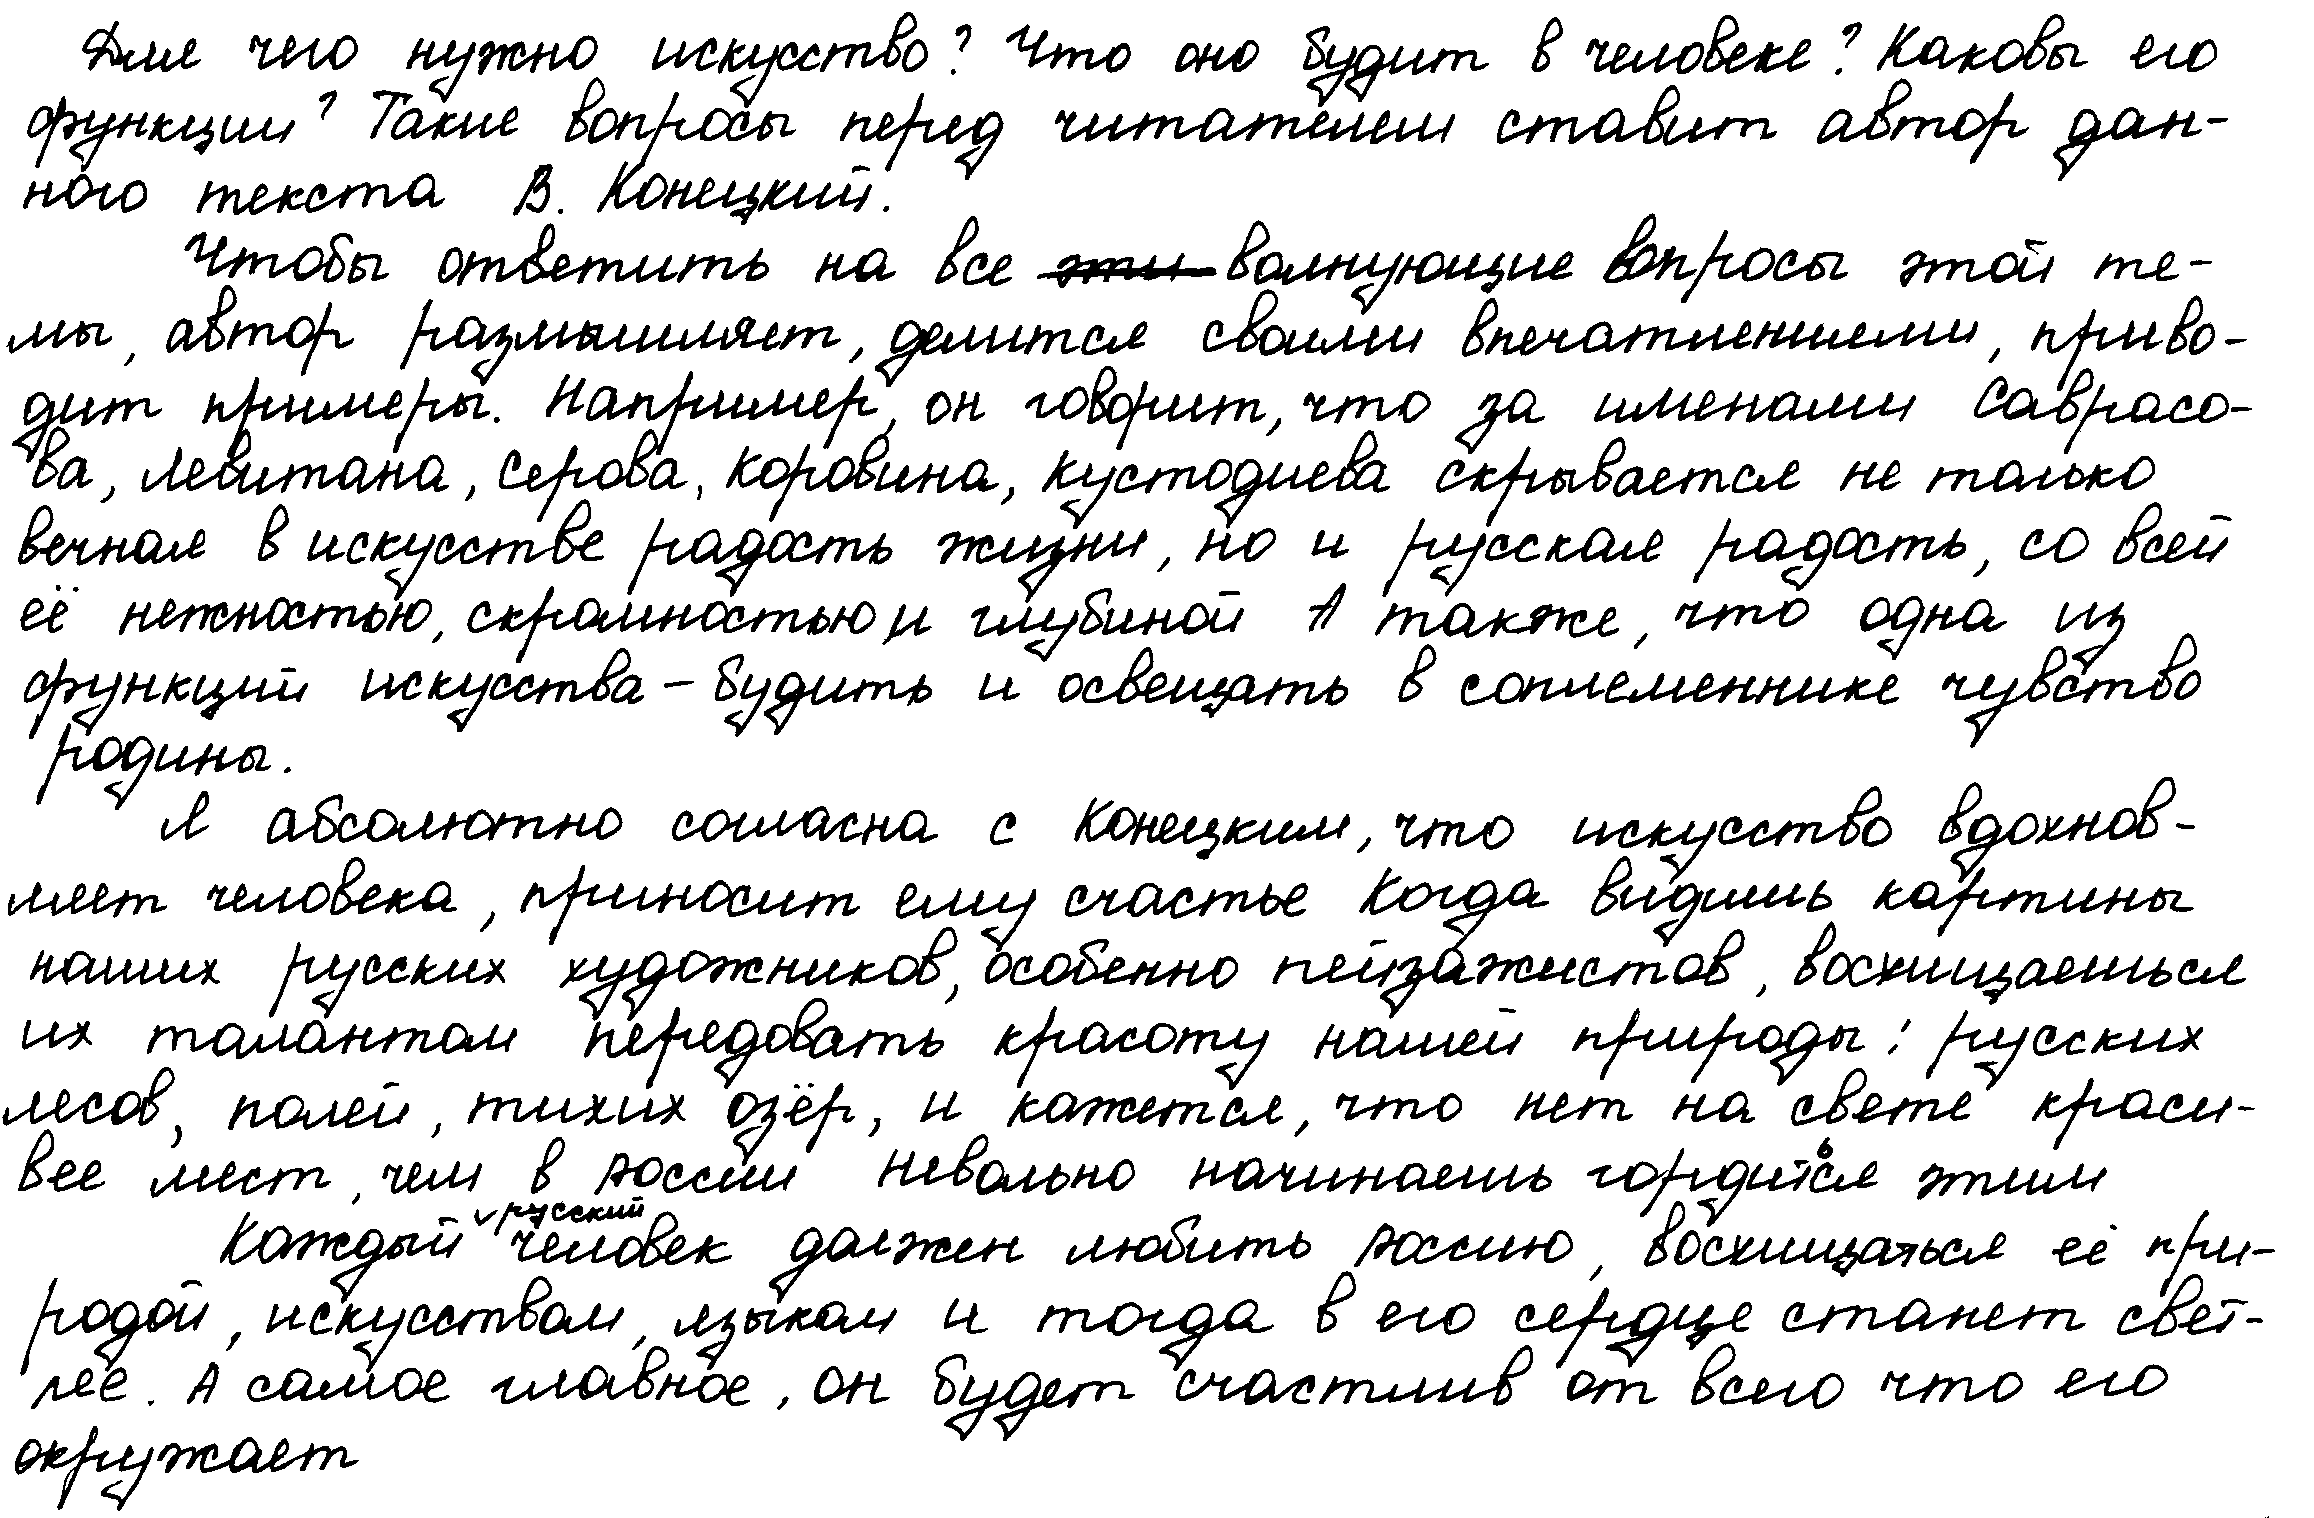 Для чего нужно искусство? Что оно будит в человеке? Каковы его
функции? Такие вопросы перед читателем ставит автор дан-
ного текста В. Конецкий.
Чтобы ответить на все эти волнующие вопросы этой те-
мы, автор размышляет, делится своими впечатлениями, приво-
дит примеры. Например, он говорит, что за именами Саврасо-
ва, Левитана, Серова, Коровина, Кустодиева скрывается не только
вечная в искусстве радость жизни, но и русская радость, со всей
её нежностью, скромностью и глубиной А также, что одна из
функций искусства - будить и освещать в соплеменнике чувство
родины.
Я абсолютно согласна с Конецким, что искусство вдохнов-
ляет человека, приносит ему счастье Когда видишь картины
наших русских художников, особенно пейзажистов, восхищаешься
их талантом передовать красоту нашей природы: русских
лесов, полей, тихих озёр, и кажется, что нет на свете краси-
вее мест, чем в России Невольно начинаешь гордиться этим
Каждый русский человек должен любить Россию, восхищаться её при-
родой, искусством, языком и тогда в его сердце станет свет-
лее. А самое главное, он будет счастлив от всего что его
окружает